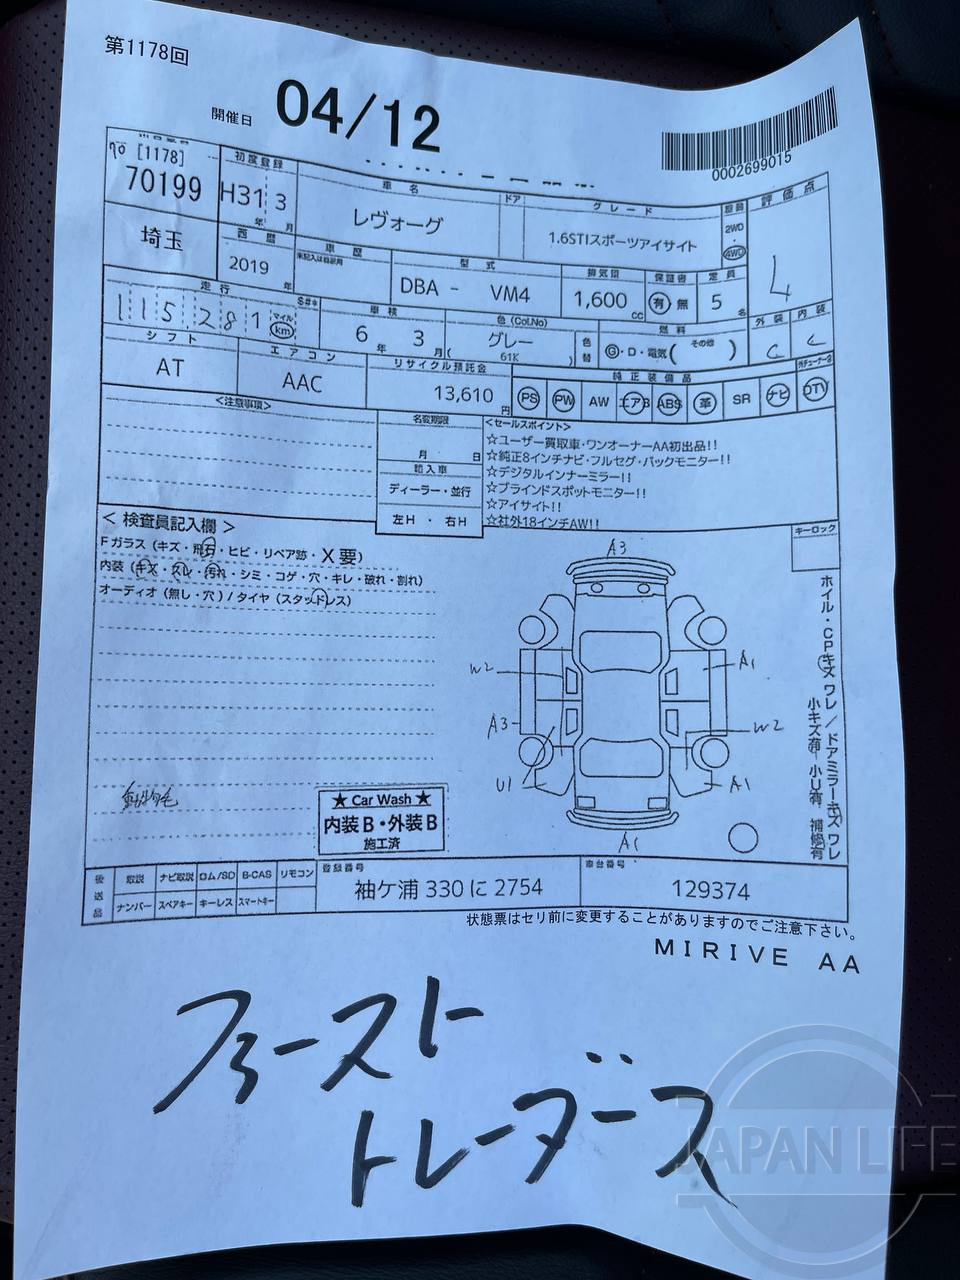 第1178回
開催日 04/12
0002699015
[1178]
70199
埼玉
初度登録
H31 3
年 月
西暦
2019 年
車名
レヴォーグ
ドア
グレード
1.6STIスポーツアイサイト
2WD
4WD
評価点
4
車歴
未記入は自家用
型式
DBA - VM4
排気量
1,600 cc
保証書
有 無
定員
5 名
走行
115,281
マイル
km
S#*
車検
6年 3月
色(Col.No)
グレー
( 61K )
色替
燃料
G・D・電気( その他 )
外装
C
内装
C
シフト
AT
エアコン
AAC
リサイクル預託金
13,610 円
純正装備品
PS PW AW エアB ABS 革 SR ナビ TV
<注意事項>
名変期限
月 日
輸入車
ディーラー・並行
左H ・ 右H
<セールスポイント>
☆ユーザー買取車・ワンオーナーAA初出品!!
☆純正8インチナビ・フルセグ・バックモニター!!
☆デジタルインナーミラー!!
☆ブラインドスポットモニター!!
☆アイサイト!!
☆社外18インチAW!!
< 検査員記入欄 >
Fガラス (キズ・飛石・ヒビ・リペア跡・X要)
内装 (キズ・スレ・汚れ・シミ・コゲ・穴・キレ・破れ・割れ)
オーディオ (無し・穴) / タイヤ (スタッドレス)
動物毛
キーロック
A3
W2
A1
A3
W2
U1
A1
A1
ホイル・CPキズ ワレ / ドアミラーキズ ワレ
小キズ有 小U有 補修有
★ Car Wash ★
内装 B・外装 B
施工済
後送品
取説 ナビ取説 ロム/SD B-CAS リモコン
ナンバー スペアキー キーレス スマートキー
登録番号
袖ケ浦 330 に 2754
車台番号
129374
状態票はセリ前に変更することがありますのでご注意下さい。
MIRIVE AA
ファースト
トレーダース
JAPAN LIFE